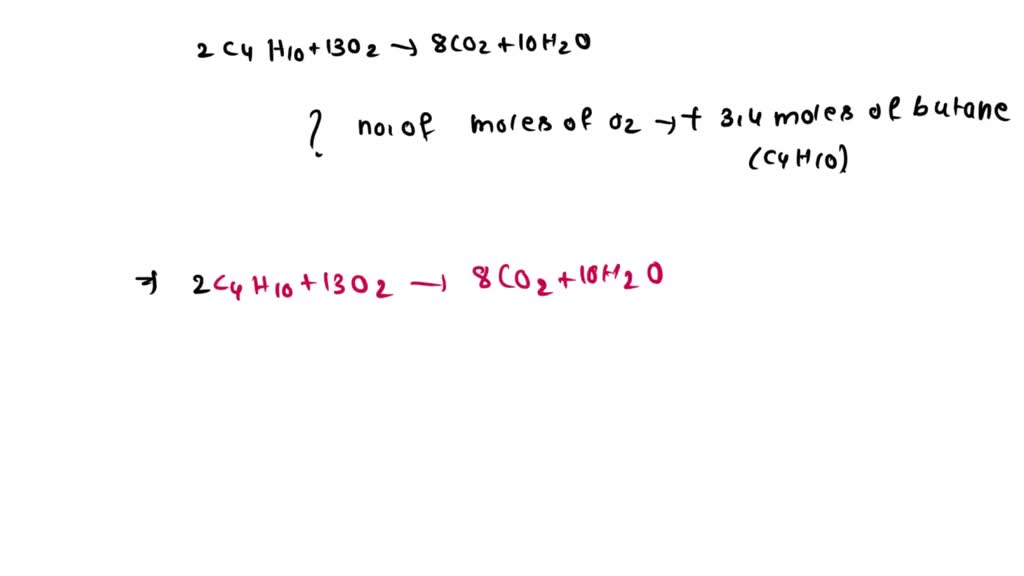 2 C4 H10 + 13O2 → 8CO2 + 10H2O
? no. of moles of O2 → + 3.4 moles of butane
(C4H10)
⇒ 2C4H10 + 13O2 → 8CO2 + 10H2O